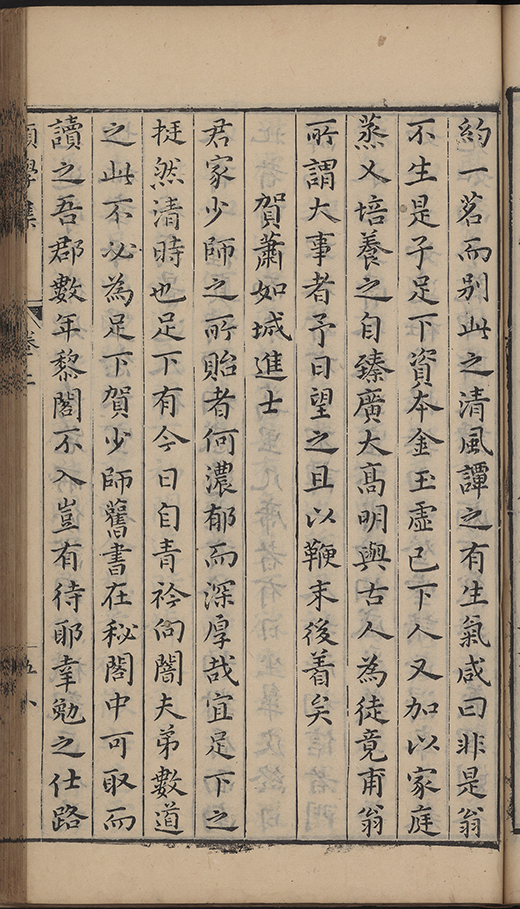 約一茗而别此之清風譚之有生氣咸曰非是翁
不生是子足下資本金玉虛己下人又加以家庭
蒸乂培養之自臻廣大髙明與古人為徒竟甫翁
所謂大事者予日望之且以鞭末後着矣
賀蕭如城進士
君家少師之所貽者何濃郁而深厚哉宜足下之
挺然清時也足下有今日自青衿向闇夫弟數道
之此不必為足下賀少師舊書在秘閣中可取而
讀之吾郡數年黎閣不入豈有待耶幸勉之仕路
學集
卷二